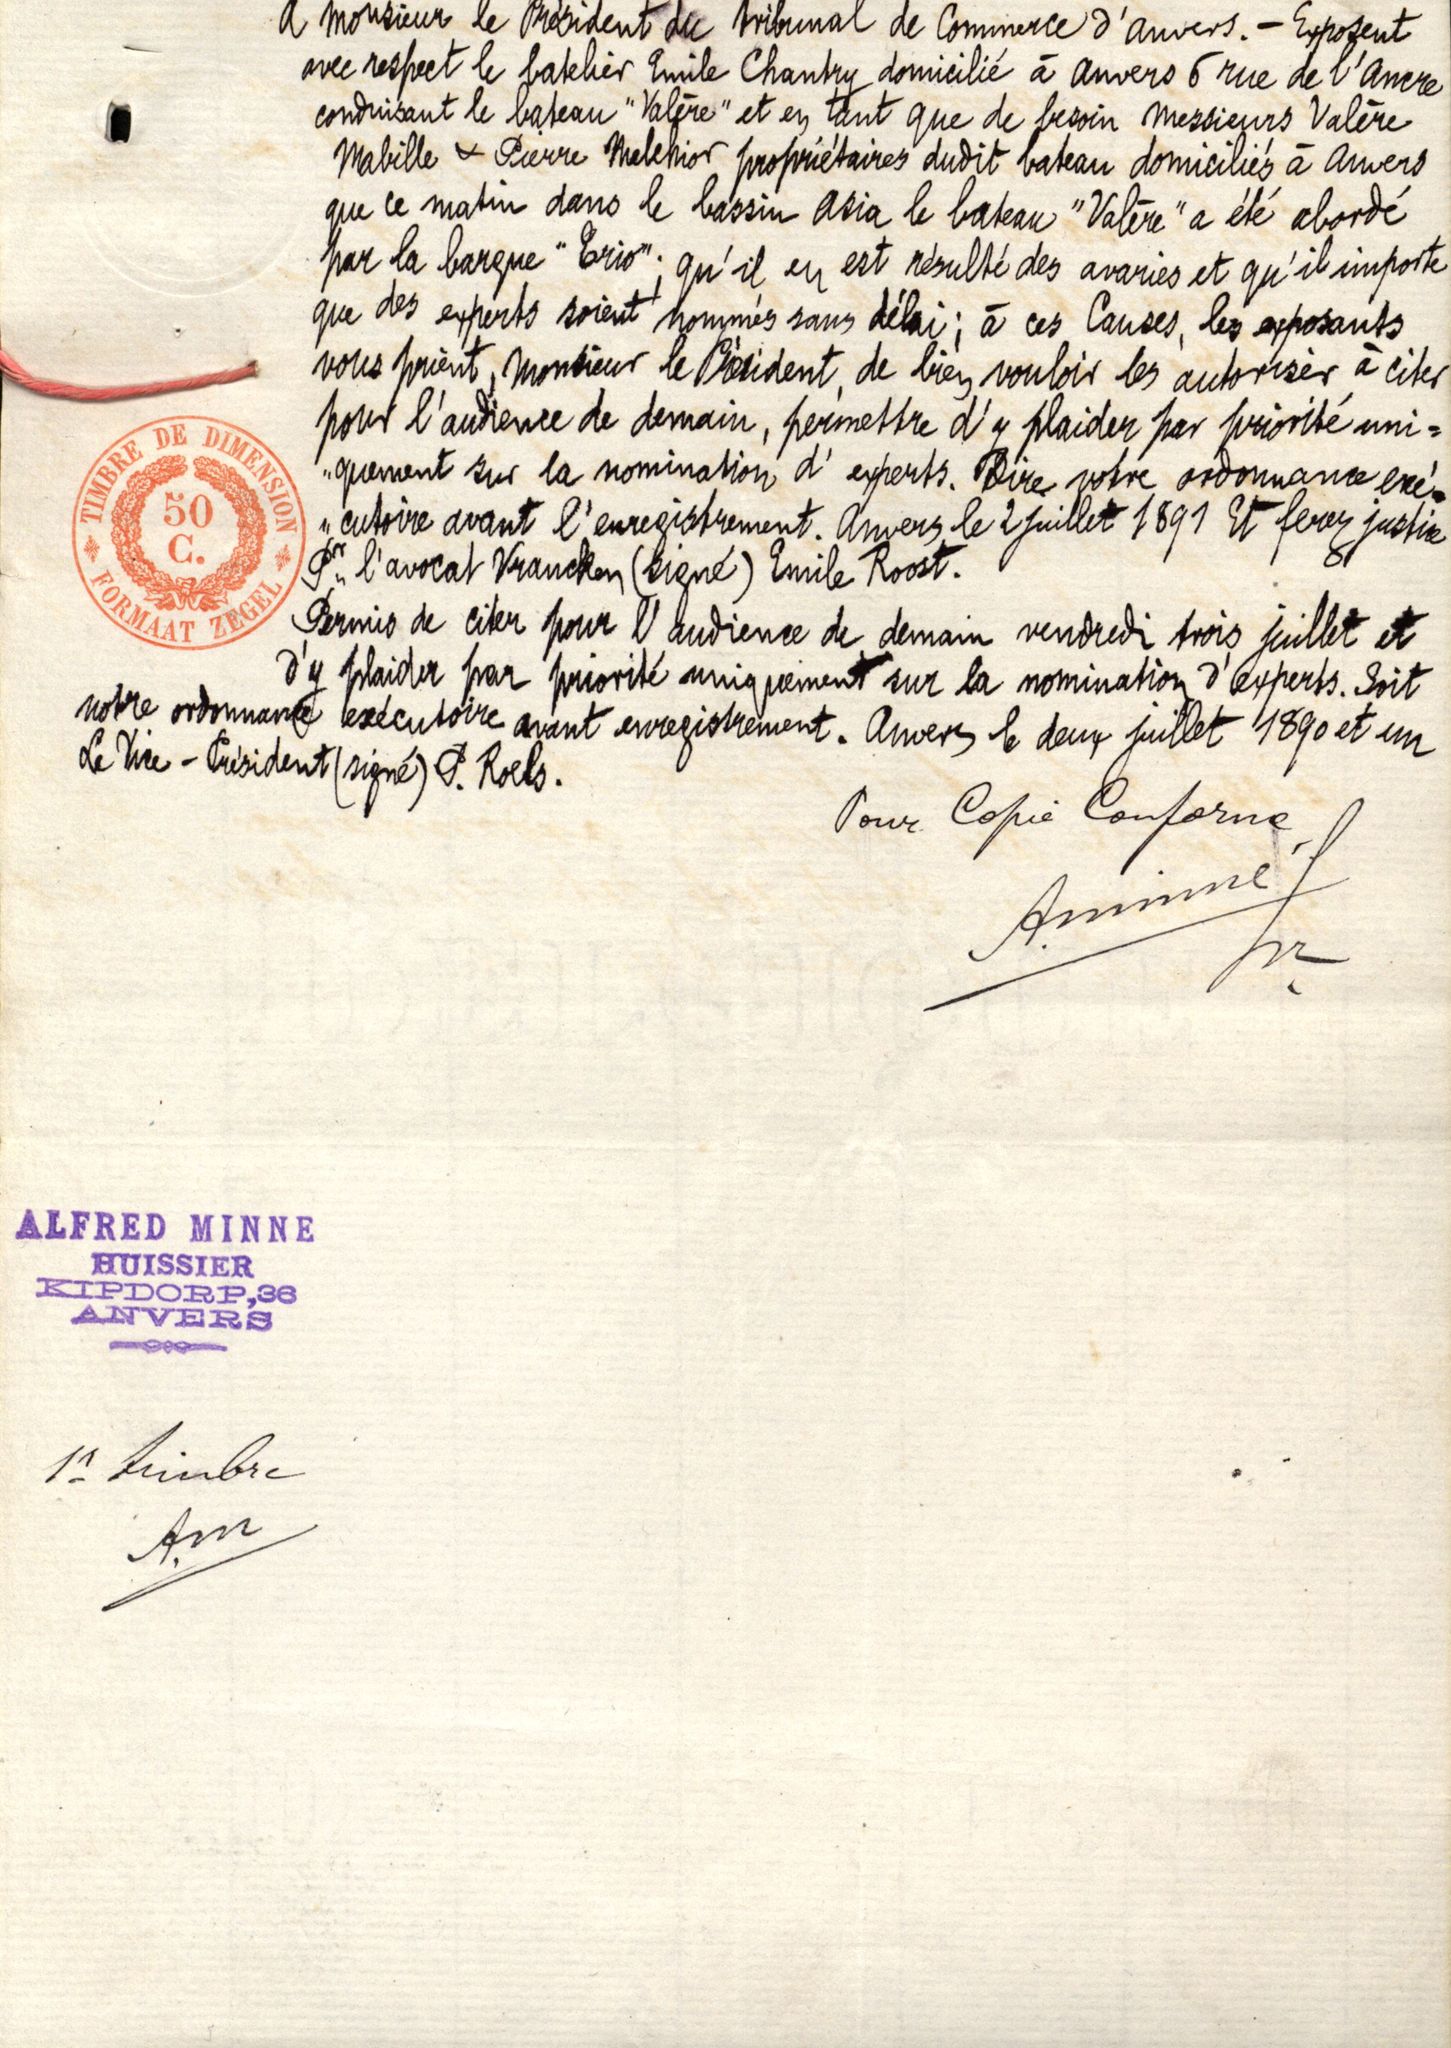 A Monsieur le Président du tribunal de Commerce d'Anvers. – Exposent
avec respect le batelier Emile Chantry domicilié à Anvers 6 rue de l'Ancre
conduisant le bateau "Valère" et en tant que de besoin Messieurs Valère
Mabille & Pierre Melchior propriétaires dudit bateau domiciliés à Anvers
que ce matin dans le bassin Asia le bateau "Valère" a été abordé
par la barque "Erio"; qu'il en est résulté des avaries et qu'il importe
que des experts soient nommés sans délai; à ces Causes, les exposants
vous prient, Monsieur le Président, de bien vouloir les autoriser à citer
pour l'audience de demain, permettre d'y plaider par priorité uni=
"quement sur la nomination d'experts. Dire votre ordonnance exé=
"cutoire avant l'enregistrement. Anvers le 2 juillet 1891 Et ferez justice
Pr l'avocat Vrancken (signé) Emile Roost.
Permis de citer pour l'audience de demain vendredi trois juillet et
d'y plaider par priorité uniquement sur la nomination d'experts. Soit
notre ordonnance exécutoire avant enregistrement. Anvers le deux juillet 1890 et un
Le Vice – Président (signé) P. Roels.
Pour Copie Conforme
A. Minne
TIMBRE DE DIMENSION
50
C.
FORMAAT ZEGEL
ALFRED MINNE
HUISSIER
KIPDORP, 36
ANVERS
1r timbre
A.M